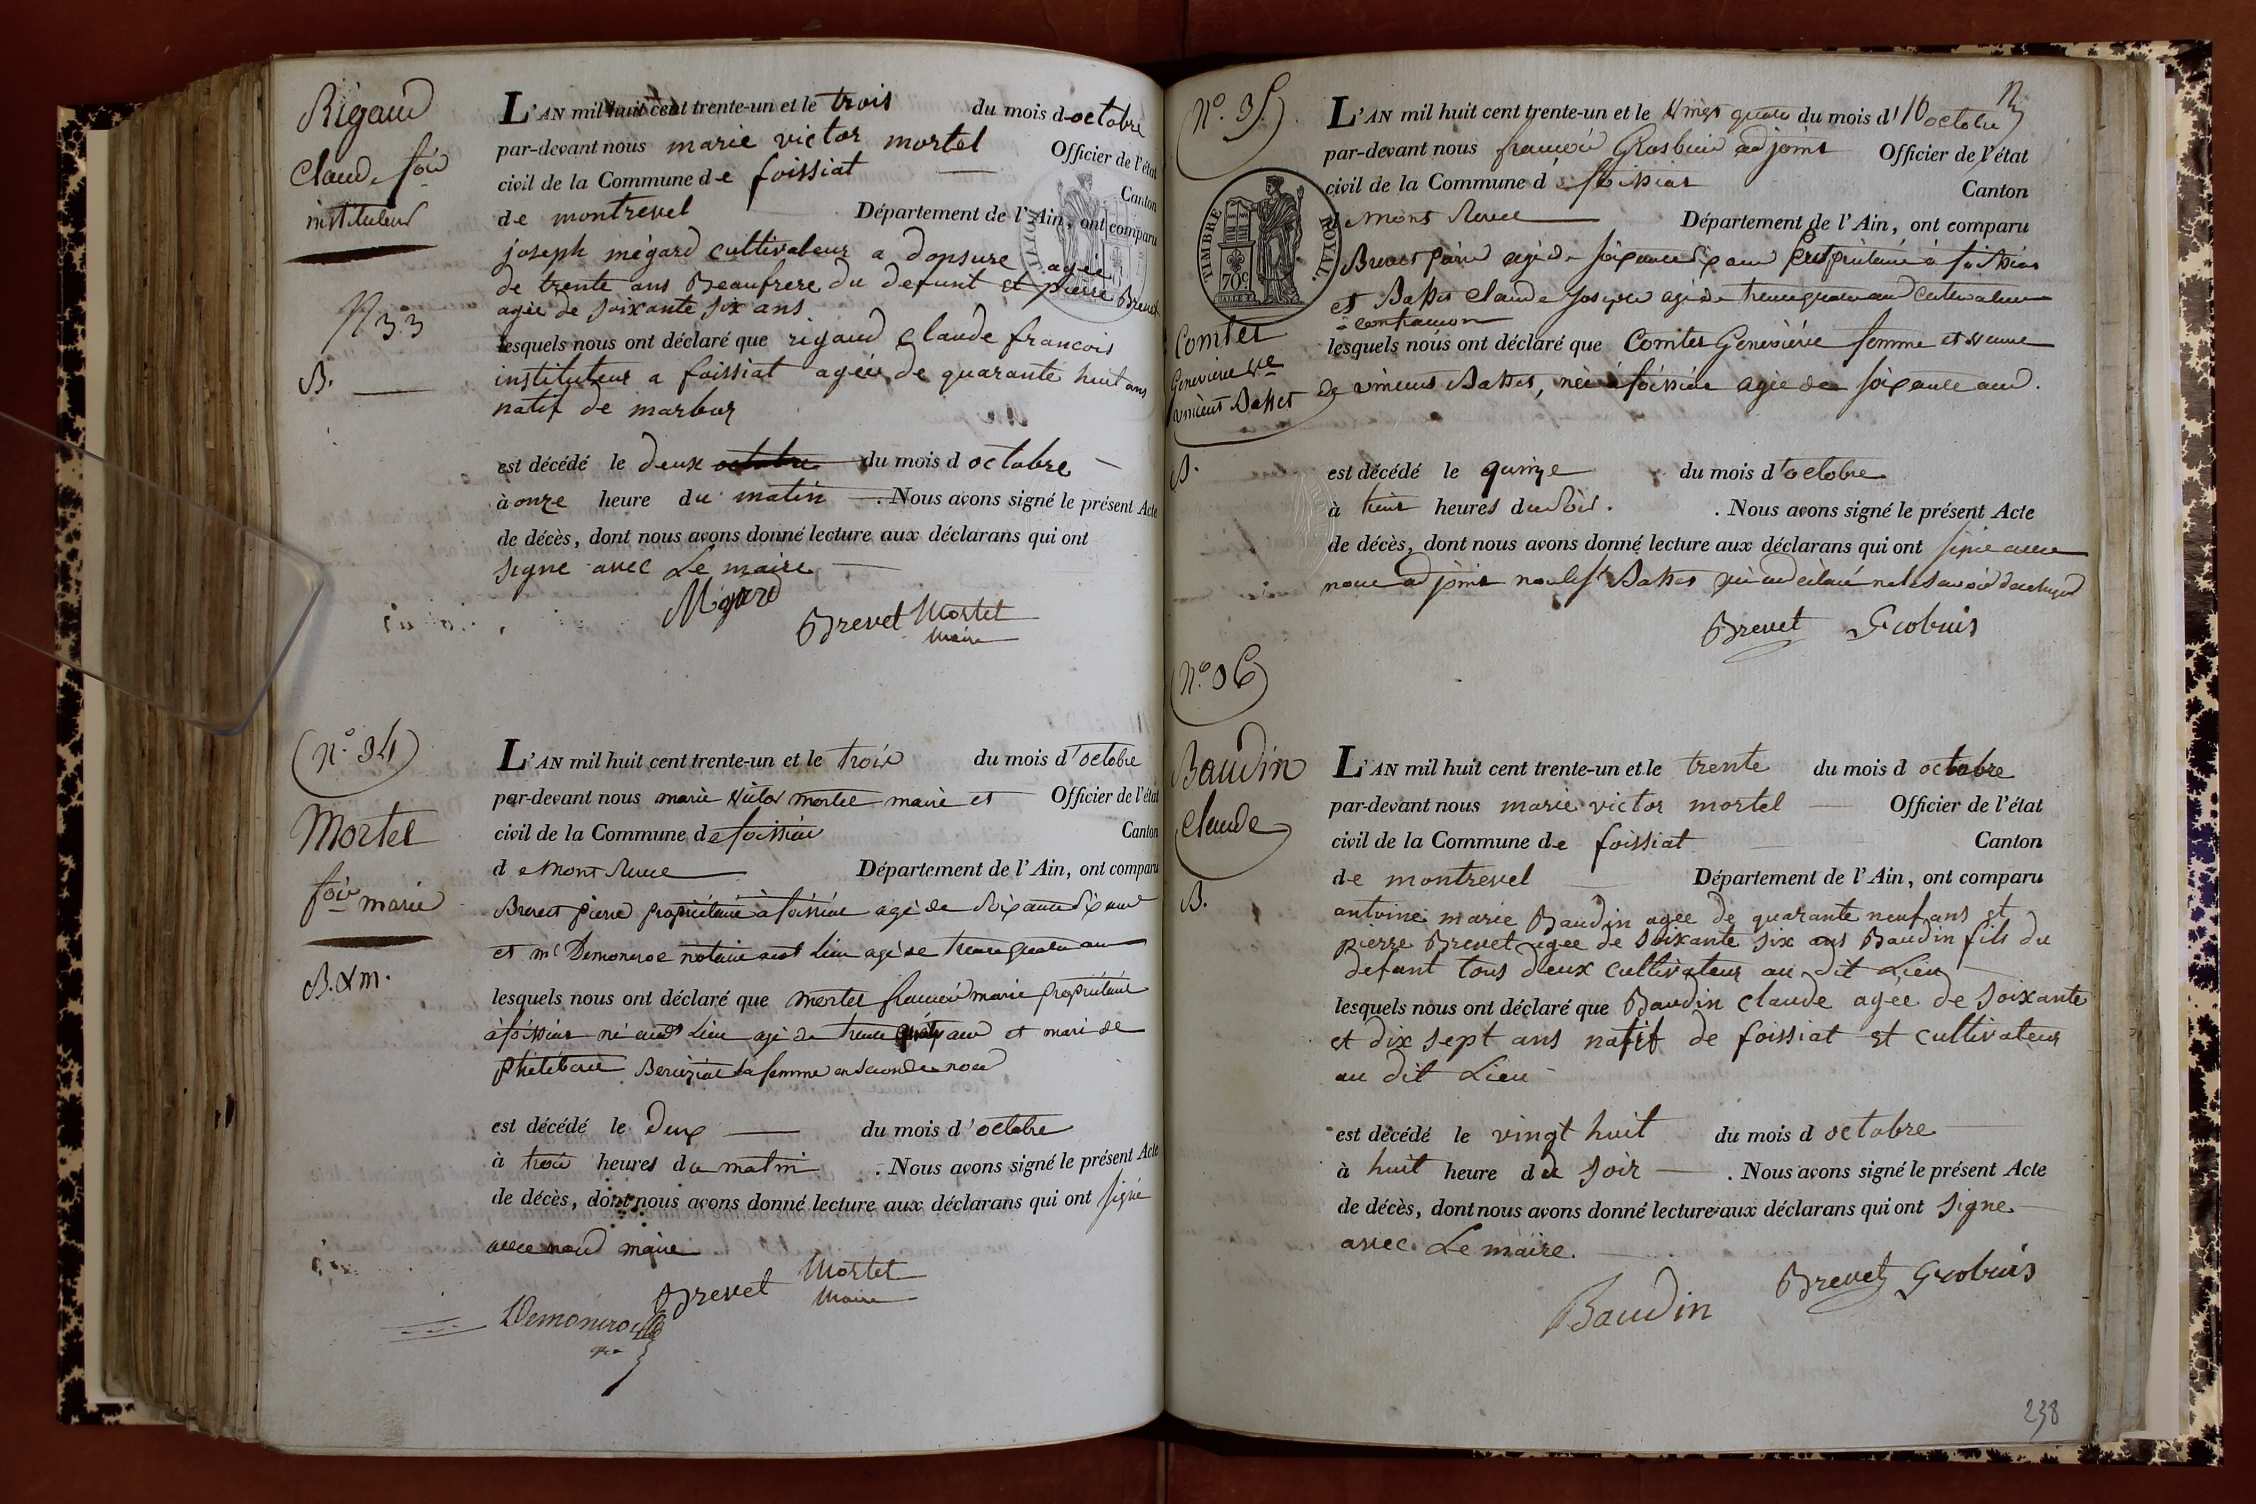 Rigaud
Claude fois
instituteur
N 33
B.
L'AN mil huit cent trente-un et le trois du mois d octobre
par-devant nous marie victor mortel Officier de l'état
civil de la Commune de foissiat Canton
de montrevel Département de l'Ain, ont comparu
joseph mégard cultivateur a domsure agée
de trente ans Beaufrere du defunt et pierre Brevet
agée de soixante six ans
lesquels nous ont déclaré que rigaud claude francois
instituteur a foissiat agée de quarante huit ans
natif de marboz
est décédé le deux octobre du mois d octobre
à onze heure du matin . Nous avons signé le présent Acte
de décès, dont nous avons donné lecture aux déclarans qui ont
signe avec Le maire
Brevet Mortel
Maire
(N.o 34)
Mortel
fois marie
B. & m.
L'AN mil huit cent trente-un et le trois du mois d'octobre
par-devant nous marie Victor mortel maire et Officier de l'état
civil de la Commune de foissiat Canton
de Mont Revel Département de l'Ain, ont comparu
Brevet pierre propriétaire à foissiat agé de soixante six ans
et mr notaire aud Lieu agé de trente quatre ans
lesquels nous ont déclaré que mortel francois marie propriétaire
à foissiat né aud Lieu agé de trente ans et mari de
sa femme en seconde noce
est décédé le deux du mois d'octobre
à trois heures du matin . Nous avons signé le présent Acte
de décès, dont nous avons donné lecture aux déclarans qui ont signé
avec nous maire
Brevet Mortel
Maire
N.o 35
TIMBRE ROYAL
70c
Comtet
Genevieve Ve
vincent Basset
B.
L'AN mil huit cent trente-un et le du mois d' 16 octobre
par-devant nous francois Grosbuis adjoint Officier de l'état
civil de la Commune d foissiat Canton
de Mont Revel Département de l'Ain, ont comparu
Brevet pierre agé de soixante six ans propriétaire à foissiat
et Basset claude joseph agé de trente quatre ans cultivateur
lesquels nous ont déclaré que Comtet Geneviève femme et veuve
de vincent Basset, née à foissiat agée de soixante ans.
est décédé le quinze du mois d'octobre
à heures du soir. . Nous avons signé le présent Acte
de décès, dont nous avons donné lecture aux déclarans qui ont signé avec
nous adjoint non led Basset qui a déclaré ne le savoir
Brevet Grobuis
(N.o 36)
Baudin
claude
B.
L'AN mil huit cent trente-un et le trente du mois d octobre
par-devant nous marie victor mortel Officier de l'état
civil de la Commune de foissiat Canton
de montrevel Département de l'Ain, ont comparu
antoine marie Baudin agee de quarante neuf ans et
pierre Brevet agee de soixante six ans Baudin fils du
defunt tous deux cultivateur au dit Lieu
lesquels nous ont déclaré que Baudin claude agée de soixante
et dix sept ans natif de foissiat et cultivateur
au dit Lieu
est décédé le vingt huit du mois d octobre
à huit heure du soir . Nous avons signé le présent Acte
de décès, dont nous avons donné lecture aux déclarans qui ont signe
avec Le maire.
Baudin Brevet Grobuis
238